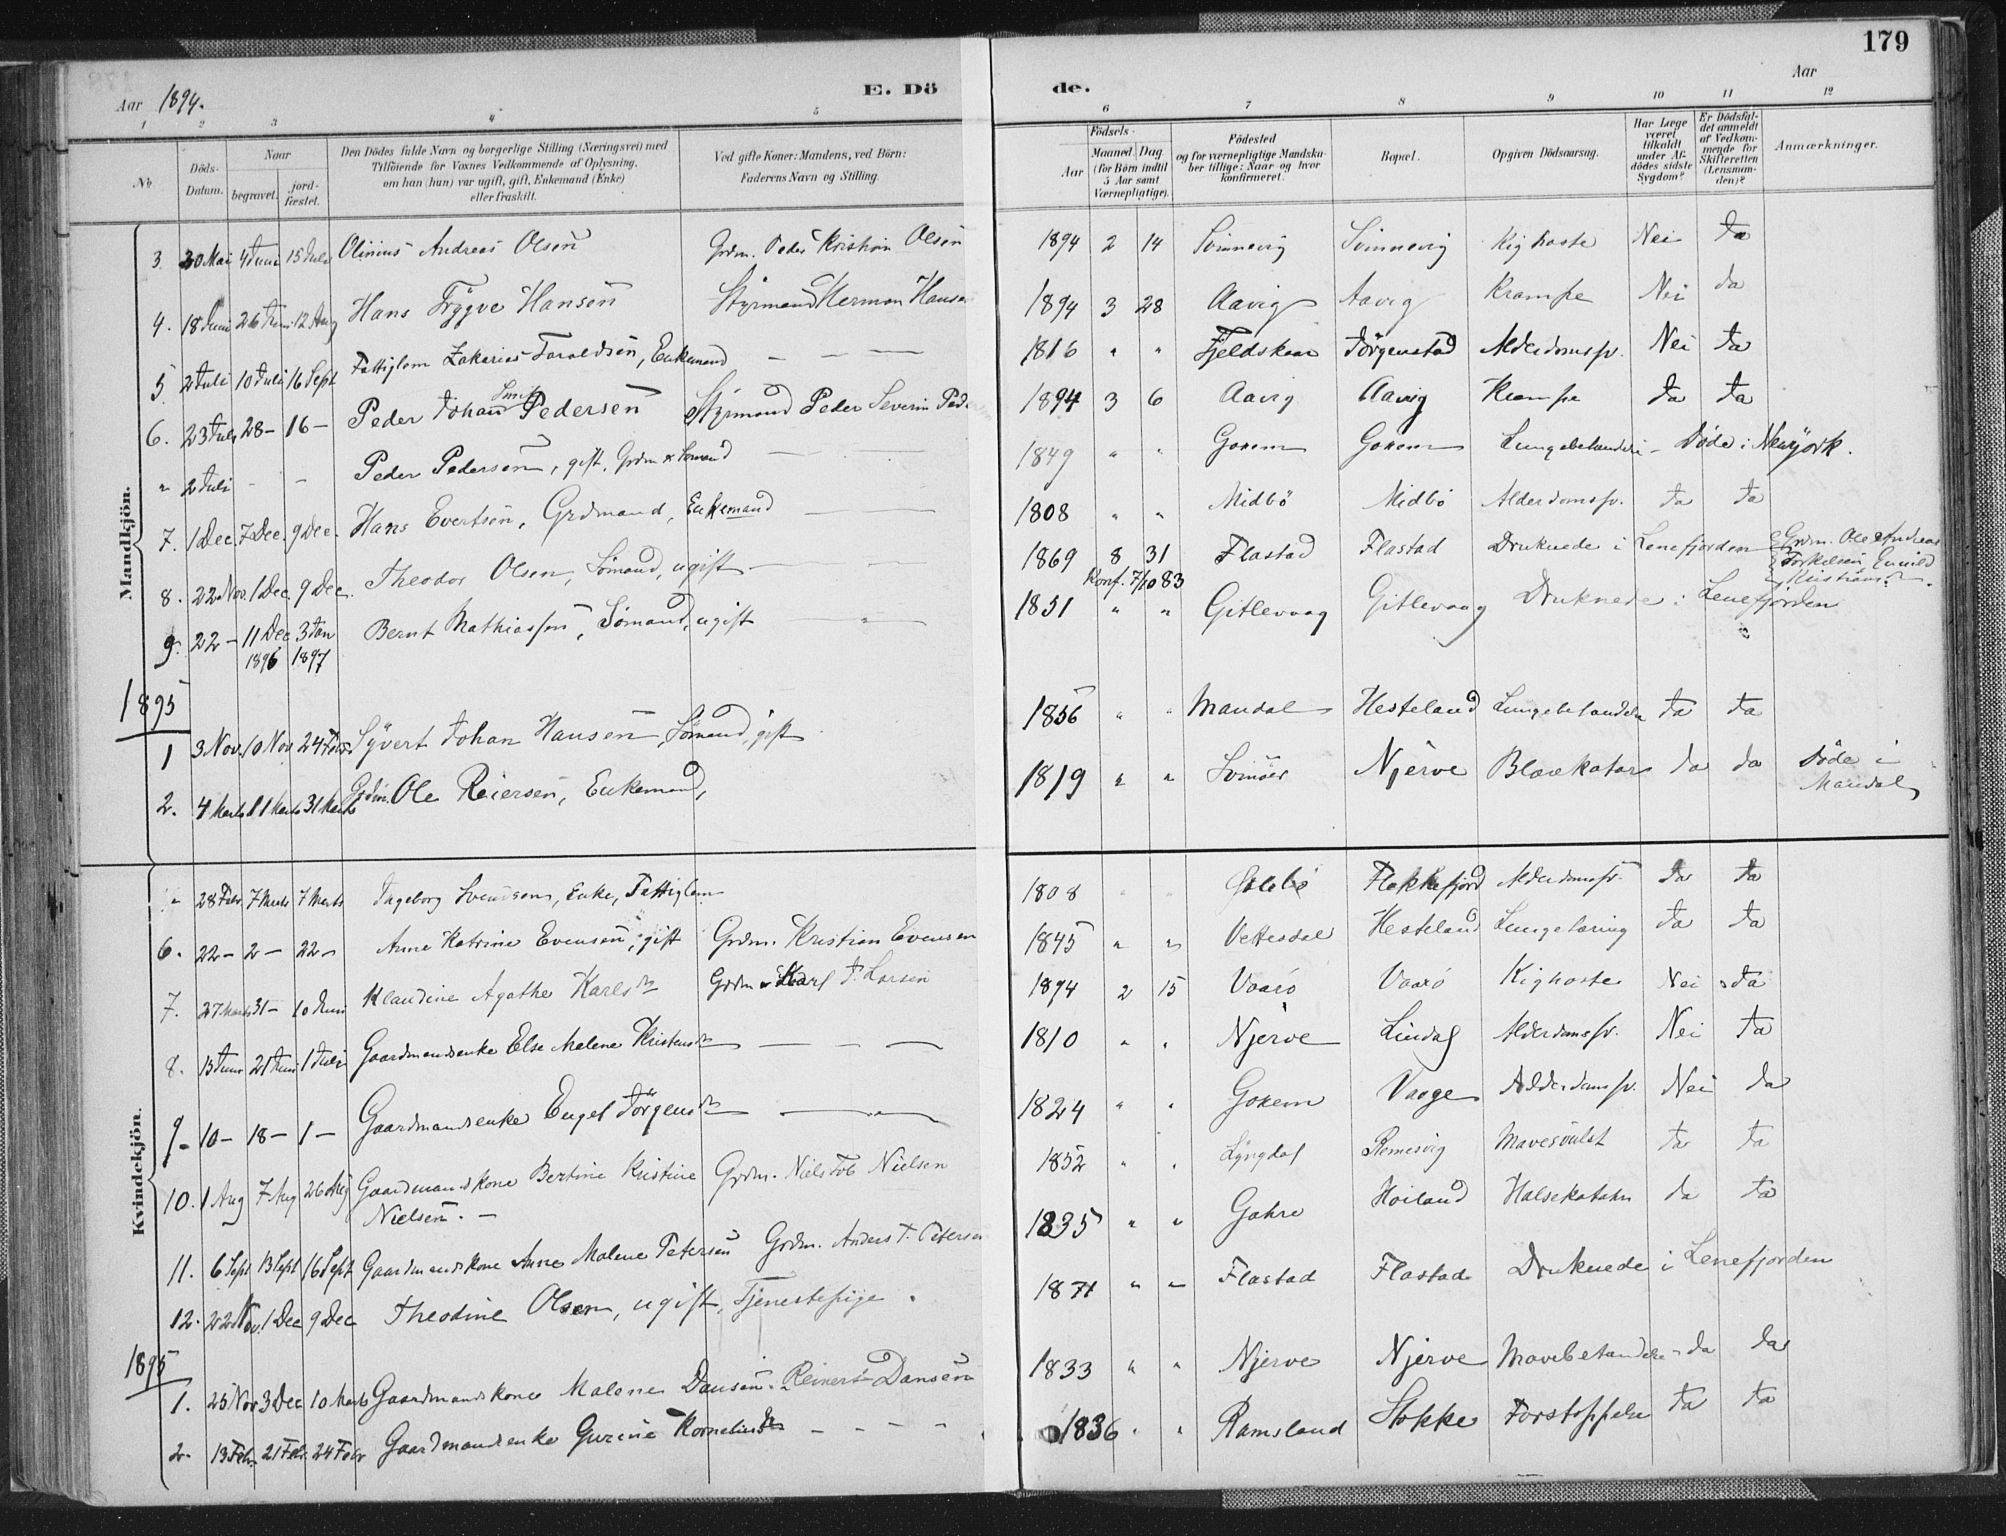 179
Aar 1894.
E. Dö de.
Aar
1 2 3 4 5 6 7 8 9 10 11 12
No
Döds-Datum.
Naar
begravet.
jord-fæstet.
Den Dödes fulde Navn og borgerlige Stilling (Næringsvei) med
Tilföiende for Voxnes Vedkommende af Oplysning,
om han (hun) var ugift, gift, Enkemand (Enke)
eller fraskilt.
Ved gifte Koner: Mandens, ved Börn:
Faderens Navn og Stilling.
Födsels-
Aar
Maaned. Dag
(for Börn indtil
5 Aar samt
Værnepligtige).
Födested
og for værnepligtige Mandska-
ber tillige: Naar og hvor
konfirmeret.
Bopæl.
Opgiven Dödsaarsag.
Har Læge
været
tilkaldt
under Af-
dödes sidste
Sygdom?
Er Dödsfal-
det anmeldt
af Vedkom-
mende for
Skifteretten
(Lensman-
den)?
Anmærkninger.
Mandkjön.
3. 30 Mai 4 Juni 15 Juli Olinius Andreas Olsen Grdm. Peder Kristian Olsen 1894 2 14 Svinnevig Svinnevig Kighoste Nei Ja
4. 18 Juni 26 Juni 12 Aug Hans Trygve Hansen Styrmand Herman Hansen 1894 3 28 Aavig Aavig Krampe Nei Ja
5 2 Juli 10 Juli 16 Sept Fattiglem Zakarias Taraldsen, Enkemand — — — 1816 " " Fjeldskaar Jörgenstad Alderdomssv. Nei Ja
6. 23 Juli 28 – 16 – Peder Johan Smith Pedersen Styrmand Peder Severin Peder 1894 3 6 Aavig Aavig Krampe Ja Ja
" 2 Juli - - Peder Pedersen, gift, Grdm & Sömand — — 1849 " " Gorem Gorem Lungebetændelse – Döde i Newyork.
7. 1 Dec. 7 Dec. 9 Dec. Hans Evertsen, Grdmand, Enkemand — — 1808 " " Midbö Midbö Alderdomssv. Ja Ja
8. 22 Nov. 1 Dec. 9 Dec. Theodor Olsen, Sömand, ugift — — 1869 8 31 Flastad Flastad Druknede i Lenefjorden Grdm. Ole Andreas
Konf. 7/10 83
Torkelsen,
9. 22 – 11 Dec 3 Jan Bernt Mathiassen, Sömand, ugift — " — 1851 " " Gitlevaag Gitlevaag Druknede i Lenefjorden
1896 1897
1895
1 3 Nov. 10 Nov. 24 Febr Syvert Johan Hansen, Sömand, gift 1856 " " Mandal Hesteland Lungebetændelse Ja Ja
2. 4 Marts 11 Marts 31 Marts Grdm. Ole Reiersen, Enkemand, 1819 " " Svinöer Njerve Blærekatar Ja Ja Döde i
Mandal
Kvindekjön.
" 28 Febr. 7 Marts 7 Marts Ingeborg Svendsen, Enke, Fattiglem 1808 Flekkefjord Alderdomssv. Ja Ja
6. 22 – 2 – 22 – Anne Katrine Evensen, gift Grdm. Kristian Evensen 1845 " " Vettesdal Hesteland Lungetæring Ja Ja
7. 27 Marts 31 – 10 Juni Klaudine Agathe Karlsdtr Grdm Karl T. Larsen 1894 2 15 Vaarö Vaarö Kighoste Nei Ja
8. 13 Juni 21 Juni 1 Juli Gaardmandsenke Else Malene Kristensdtr — — — 1810 " " Njerve Lindal Alderdomssv. Nei Ja
9 – 10 – 18 – 1 – Gaardmandsenke Engel Jörgensdtr — — 1824 " " Gorem Vaage Alderdomssv. Nei Ja
10. 1 Aug 7 Aug 26 Aug Gaardmandskone Bertine Kristine Grdm. Niels Tob Nielsen 1852 " " Lyngdal Remesvig Mavesvulst Ja Ja
Nielsen. –
11. 6 Sept 13 Sept 16 Sept Gaardmandskone Anne Malene Petersen Grdm. Anders T. Petersen 1835 " " Gahre Höiland Halsekatarr Ja Ja
12. 22 Nov. 1 Dec 9 Dec Theodine Olsen, ugift, Tjenestepige. 1871 " " Flastad Flastad Druknede i Lenefjorden
1895
1. 25 Nov 3 Dec 10 Marts Gaardmandskone Malene Dansen. Reinert Dansen 1833 " " Njerve Njerve Mavebetændelse Ja Ja
2. 13 Febr. 21 Febr. 24 Febr Gaardmandsenke Gurine Korneliusdtr — — — 1836 " " Ramsland Stokke Forstoppelse Ja Ja